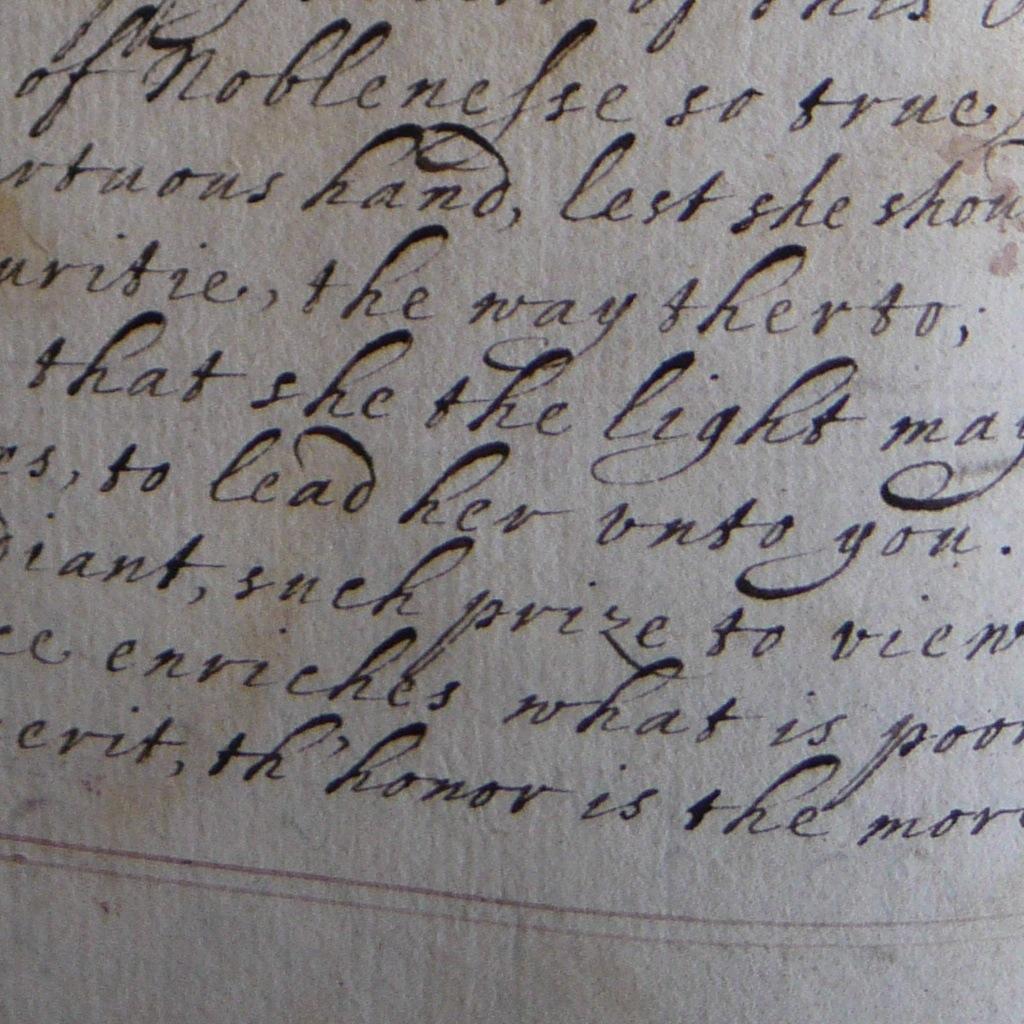 of this
of Noblenesse so true,
rtuous hand, lest she shou
uritie, the way therto;
that she the light may
es, to lead her vnto you.
diant, such prize to view
ce enriches what is poor
erit, th' honor is the more